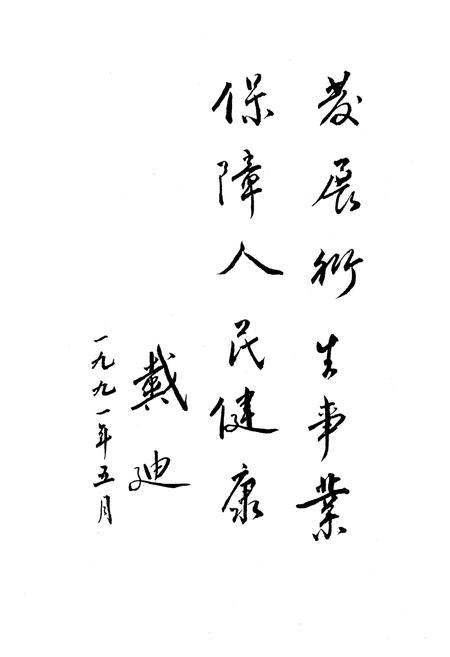 發展衛生事業
保障人民健康
戴迪
一九九一年五月